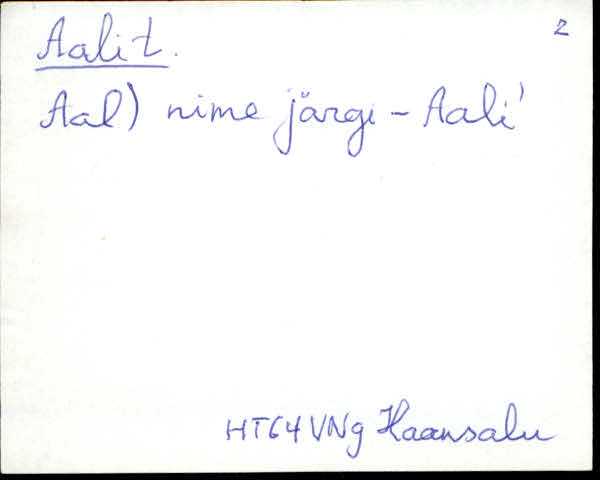 Aalit. 2
Aal) nime järgi - Aali'
HT64 VNg Haansalu